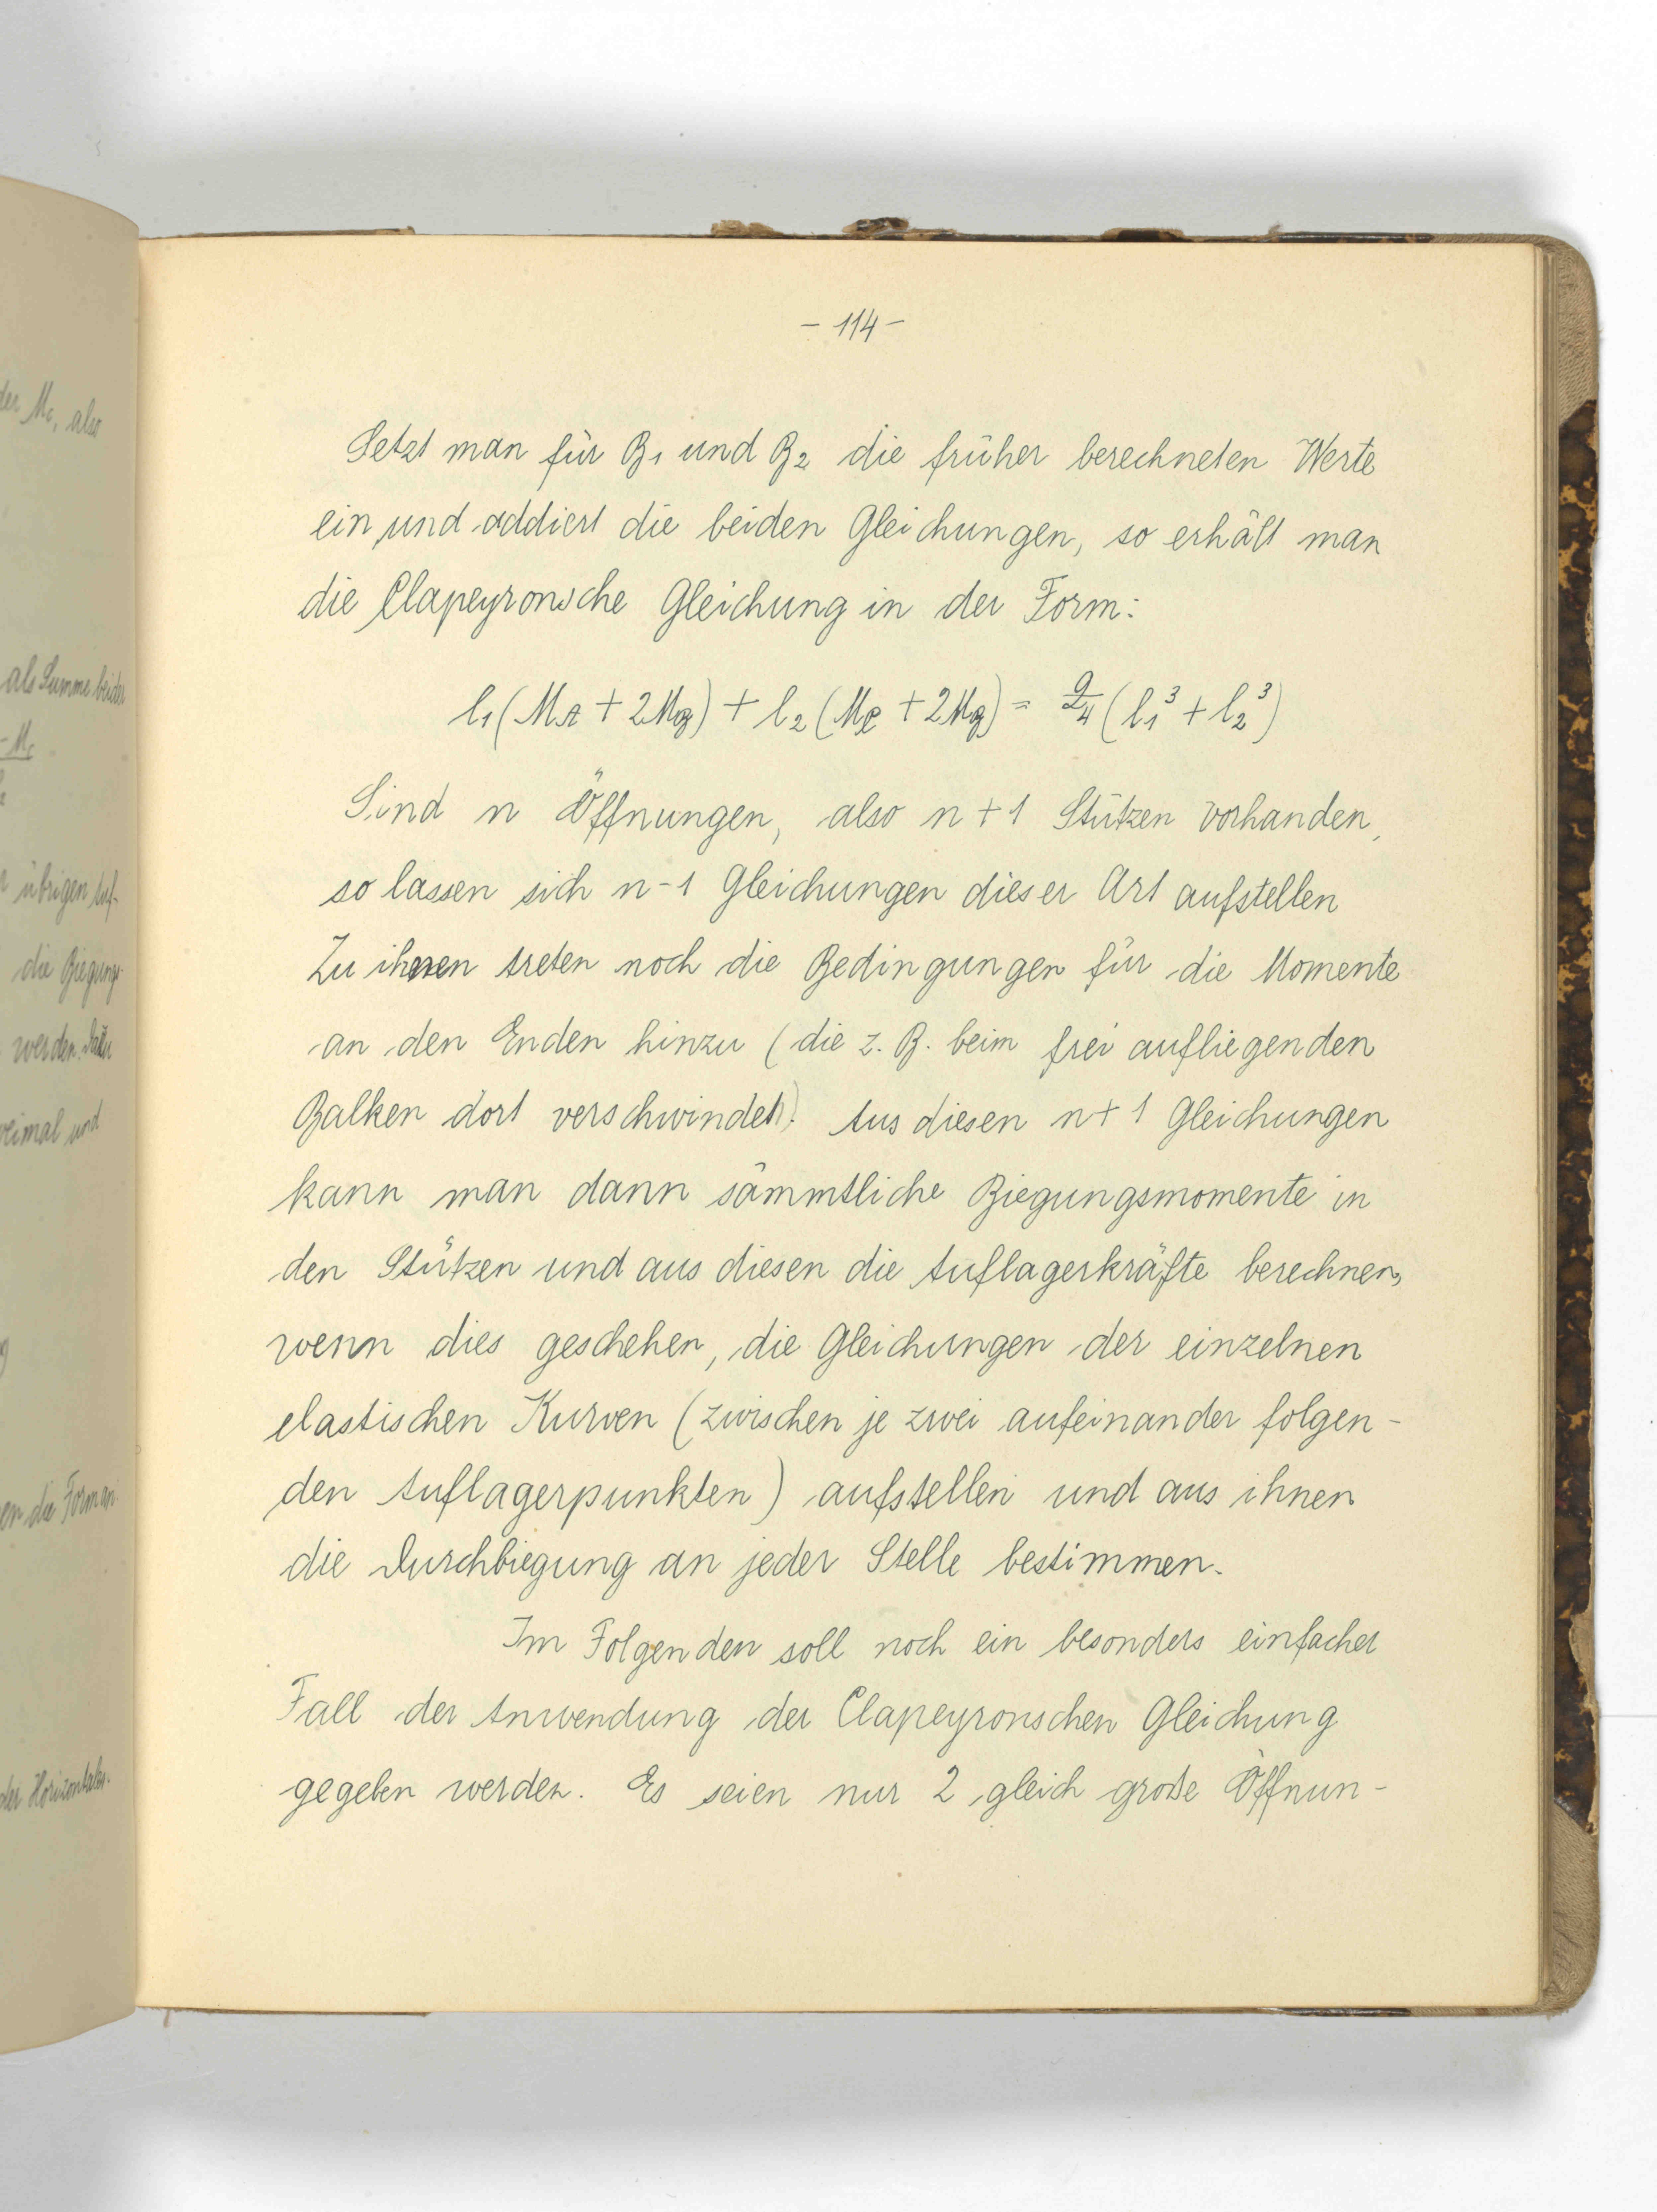 - 114 -
Setzt man für B₁ und B₂ die früher berechneten Werte
ein und addiert die beiden Gleichungen, so erhält man
die Clapeyronsche Gleichung in der Form:
l₁(M_A + 2M_B) + l₂(M_C + 2M_B) = q/4 (l₁³ + l₂³)
Sind n Öffnungen, also n + 1 Stützen vorhanden,
so lassen sich n-1 Gleichungen dieser Art aufstellen
Zu ihnen treten noch die Bedingungen für die Momente
an den Enden hinzu (die z. B. beim frei aufliegenden
Balken dort verschwindet). Aus diesen n + 1 Gleichungen
kann man dann sämmtliche Biegungsmomente in
den Stützen und aus diesen die Auflagerkräfte berechnen,
wenn dies geschehen, die Gleichungen der einzelnen
elastischen Kurven (zwischen je zwei aufeinander folgen-
den Auflagerpunkten) aufstellen und aus ihnen
die Durchbiegung an jeder Stelle bestimmen.
Im Folgenden soll noch ein besonders einfacher
Fall der Anwendung der Clapeyronschen Gleichung
gegeben werden. Es seien nur 2 gleich große Öffnun-
der Mc, also
als Summe beider
- Mc
übrigen Auf-
die Biegungs-
werden. Dazu
zweimal und
die Form an
der Horizontalen.